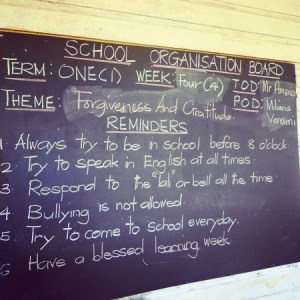 SCHOOL ORGANISATION BOARD
TERM: ONE(1) WEEK: Four (4) TOD: Mr
THEME: Forgiveness And Gratitude. POD: Miliana
REMINDERS
1. Always try to be in school before 8 o'clock
2. Try to speak in English at all times.
3. Respond to the "lali" or bell all the time.
4. Bullying is not allowed.
5 Try to come to school everyday.
6 Have a blessed learning week